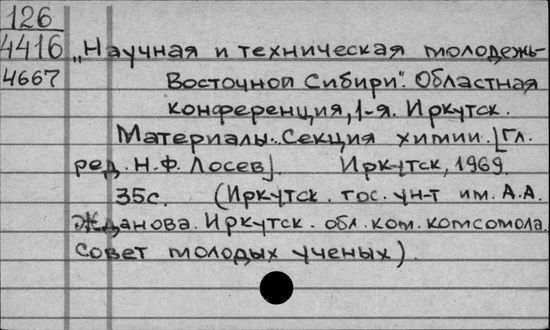 126
4416
4667
„Научная и техническая молодежь
Восточной Сибири". Областная
конференция, 1-я. Иркутск.
Материалы. Секция химии. [Гл.
ред. Н.Ф. Лосев]. Иркутск, 1969.
35с. (Иркутск. гос. ун-т им. А.А.
Жданова. Иркутск. обл. ком. комсомола.
Совет молодых ученых).